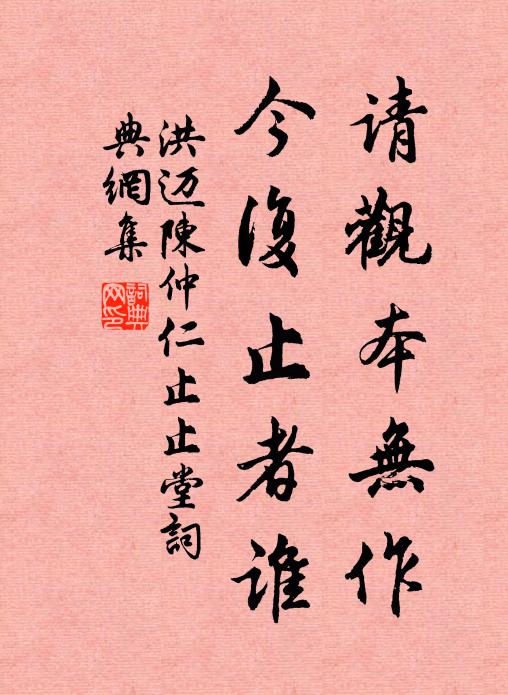 请觀本無作
今復止者谁
洪迈陳仲仁止止堂詞
典網集
詞典网印